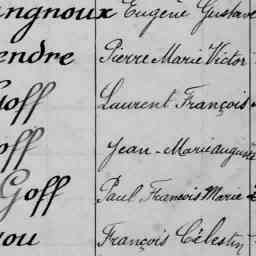 ngnoux Eugène Gustave
endre Pierre Marie Victor
Goff Laurent François
off Jean-Marie auguste
Goff Paul François Marie
ou François Célestin